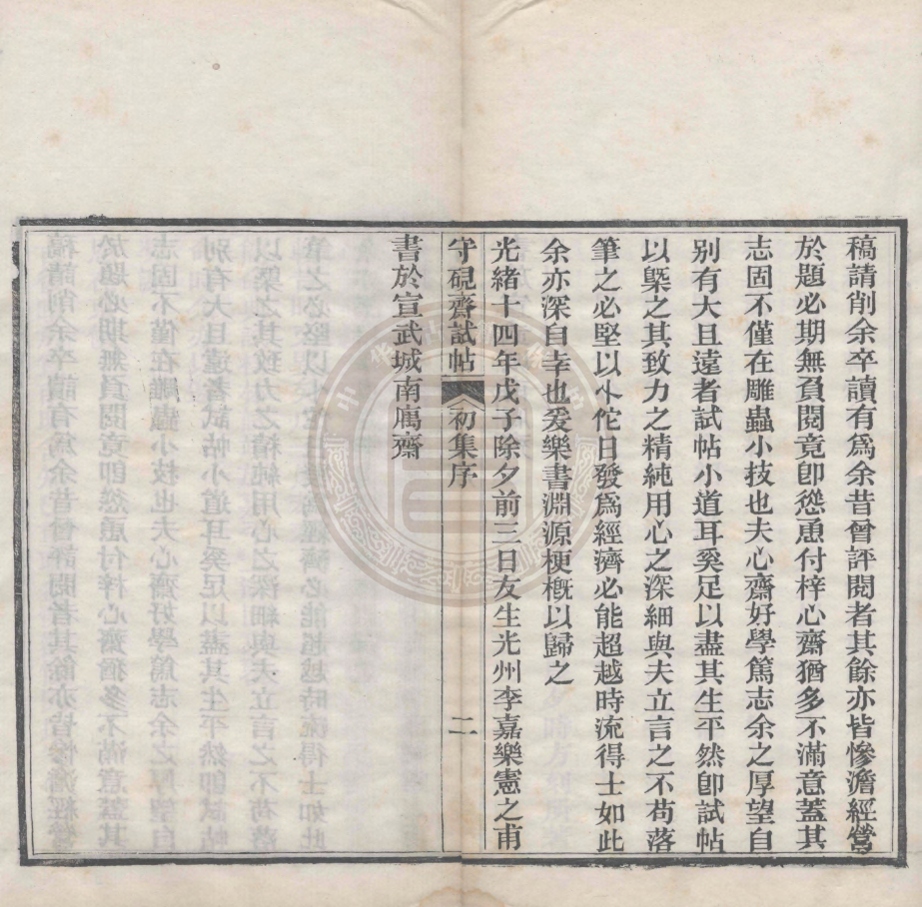 稿請削余卒讀有爲余昔曾評閱者其餘亦皆慘澹經營
於題必期無負閱竟卽慫恿付梓心齋猶多不滿意蓋其
志固不僅在雕蟲小技也夫心齋好學篤志余之厚望自
別有大且遠者試帖小道耳奚足以盡其生平然卽試帖
以槩之其致力之精純用心之深細與夫立言之不苟落
筆之必堅以卜佗日發爲經濟必能超越時流得士如此
余亦深自幸也爰樂書淵源梗槪以歸之
光緒十四年戊子除夕前三日友生光州李嘉樂憲之甫
守硯齋試帖 初集序 二
書於宣武城南廡齋